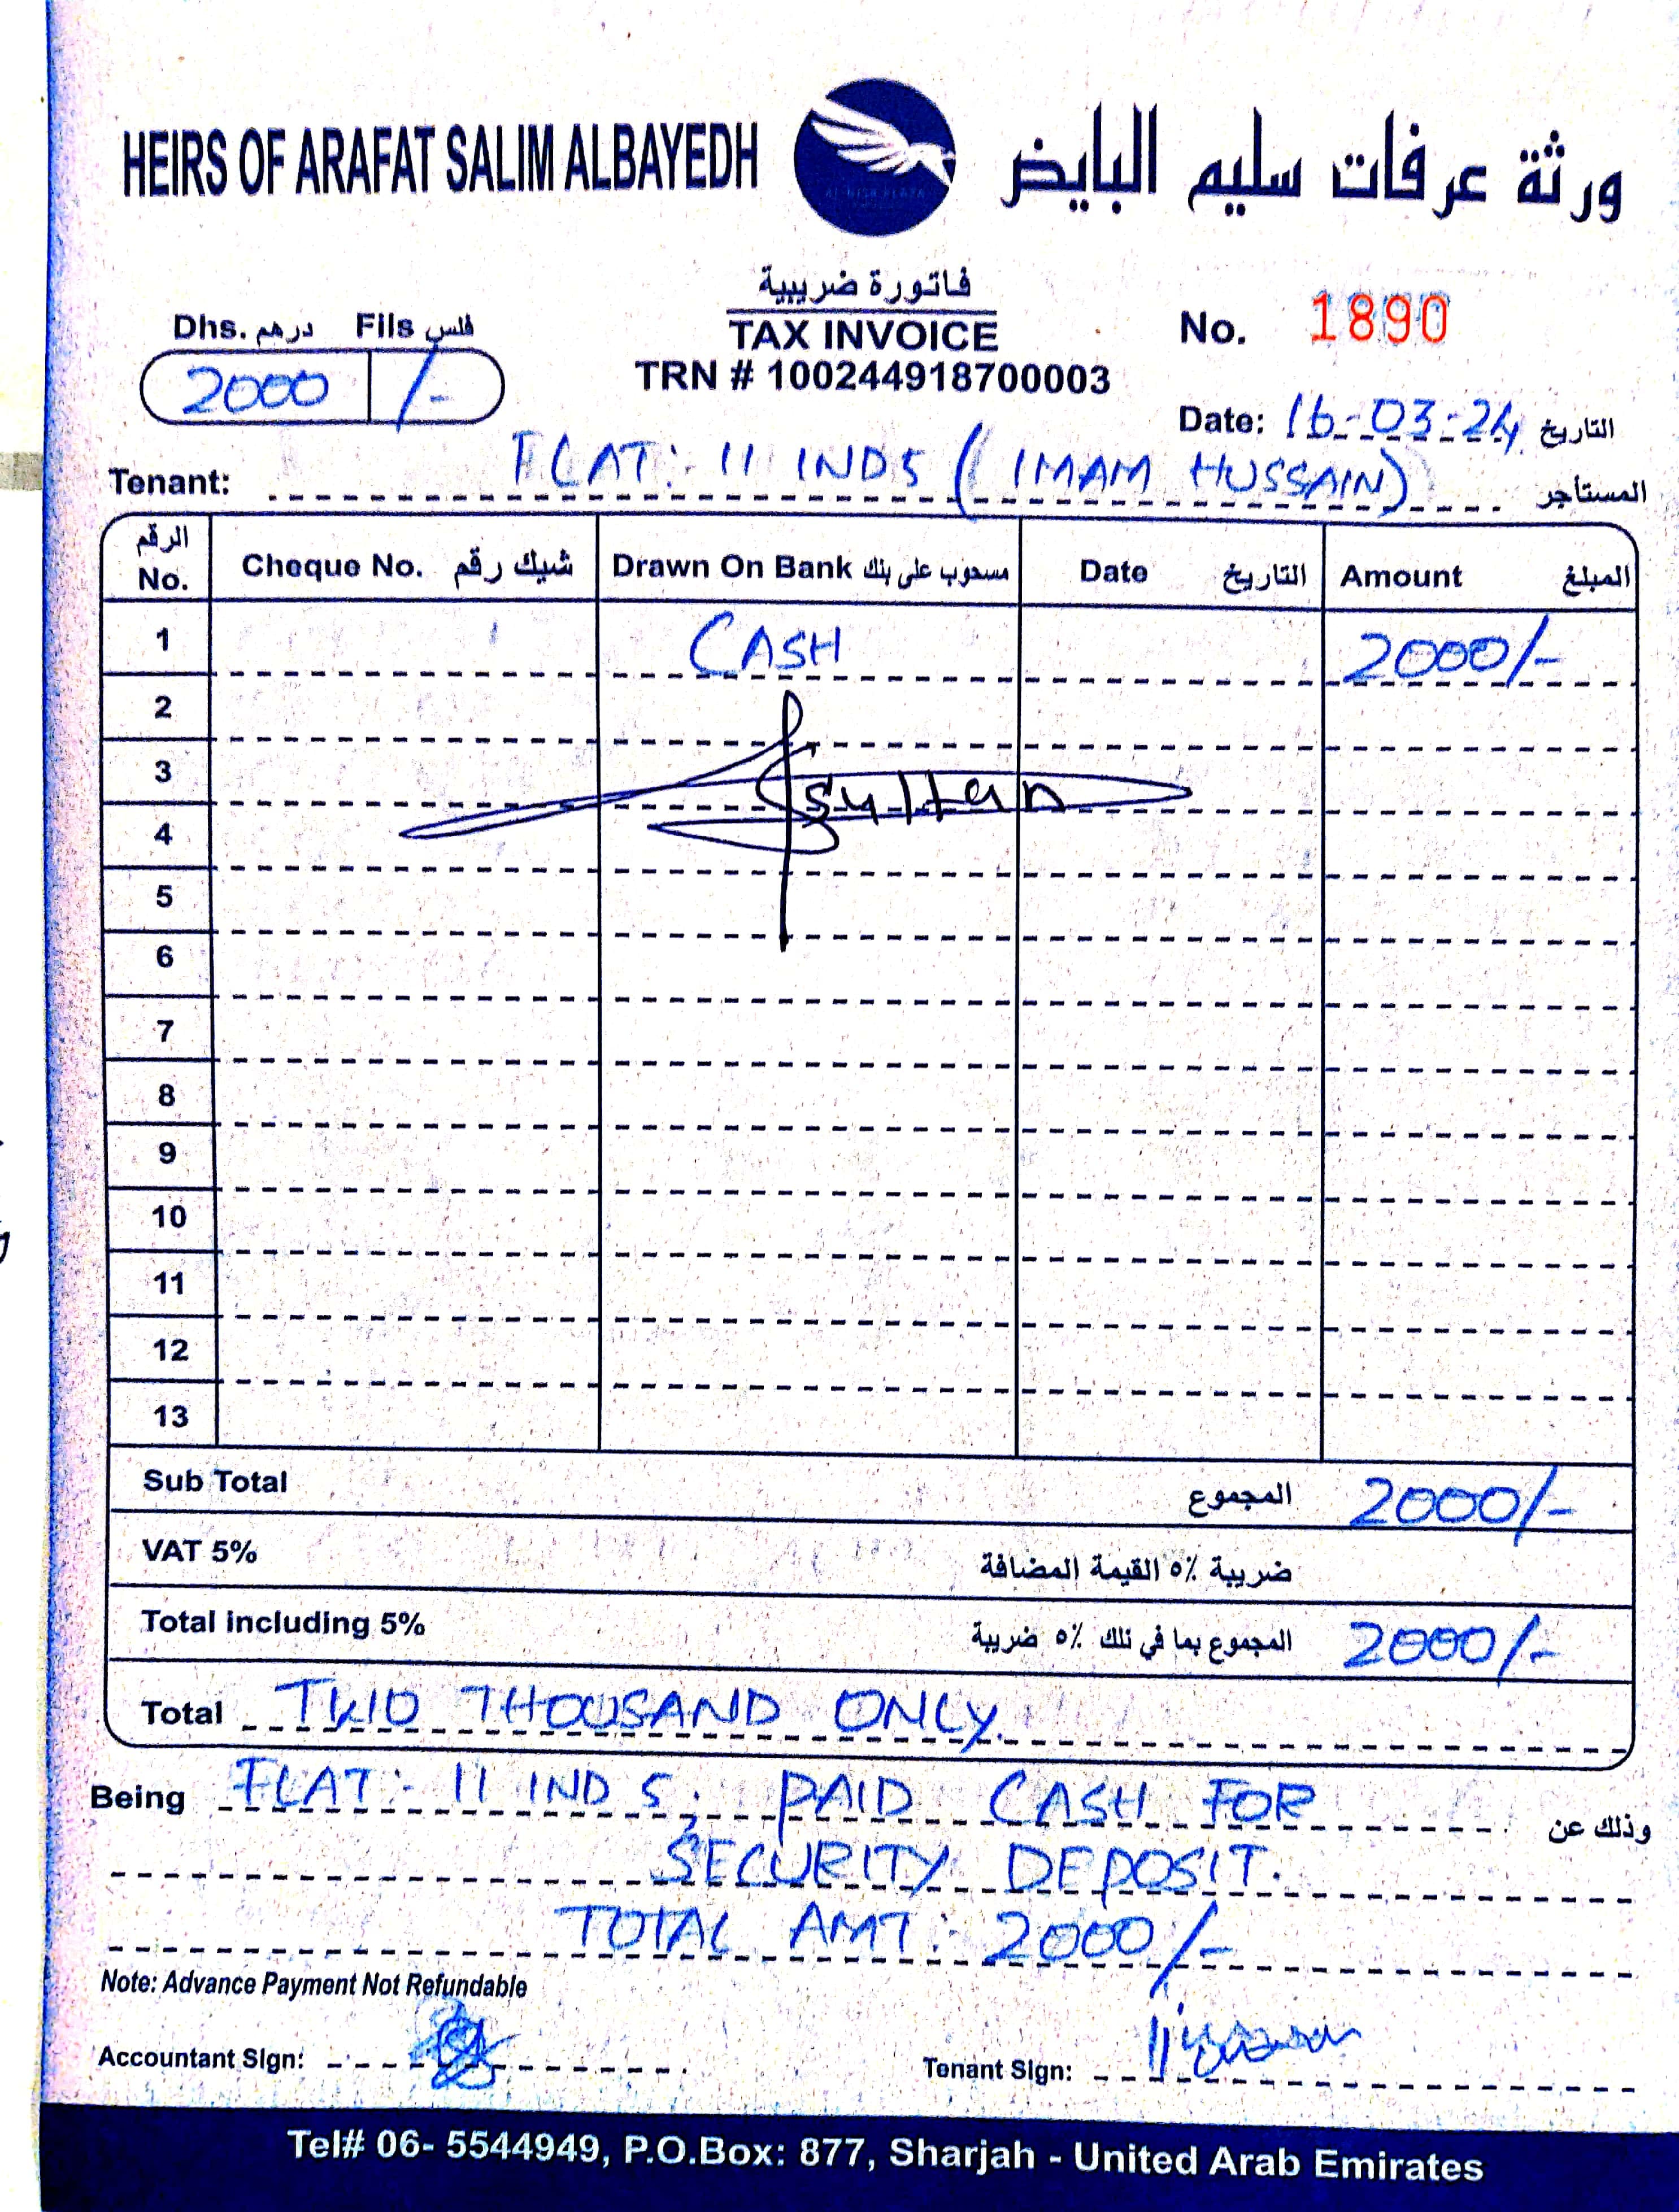 HEIRS OF ARAFAT SALIM ALBAYEDH ورثة عرفات سليم البايض
فاتورة ضريبية
TAX INVOICE
TRN # 100244918700003
Dhs. درهم Fils فلس
2000 /-
No. 1890
Date: 16-03-24 التاريخ
Tenant: FLAT: 11 IND 5 (IMAM HUSSAIN) المستأجر
الرقم No. Cheque No. شيك رقم Drawn On Bank مسحوب على بنك Date التاريخ Amount المبلغ
1 CASH 2000/-
2
3
sultan
4
5
6
7
8
9
10
11
12
13
Sub Total المجموع 2000/-
VAT 5% ضريبة ٥٪ القيمة المضافة
Total including 5% المجموع بما في ذلك ٥٪ ضريبة 2000/-
Total TWO THOUSAND ONLY.
Being FLAT: 11 IND 5, PAID CASH FOR وذلك عن
SECURITY DEPOSIT.
TOTAL AMT: 2000/-
Note: Advance Payment Not Refundable
Accountant Sign:
Tenant Sign:
Tel# 06- 5544949, P.O.Box: 877, Sharjah - United Arab Emirates